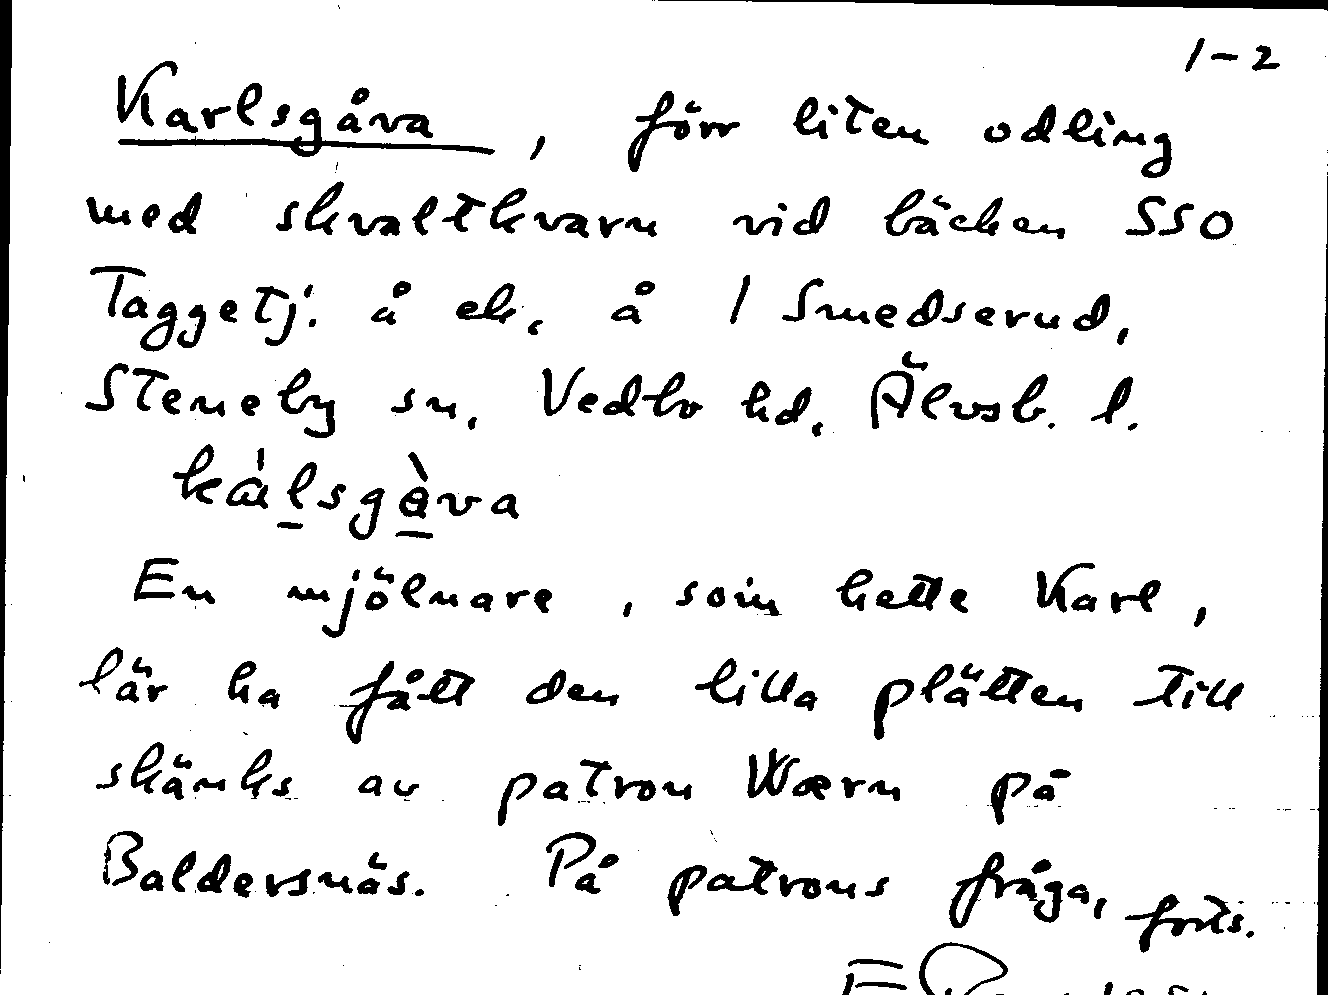 1-2
Karlsgåva, förr liten odling
med skvaltkvarn vid bäcken SSO
Taggetj. å ek. å 1 Smedserud,
Steneby sn, Vedbo hd, Älvsb. l.
En mjölnare, som hette Karl,
lär ha fått den lilla plätten till
skänks av patron Wærn på
Baldersnäs. På patrons fråga, forts.